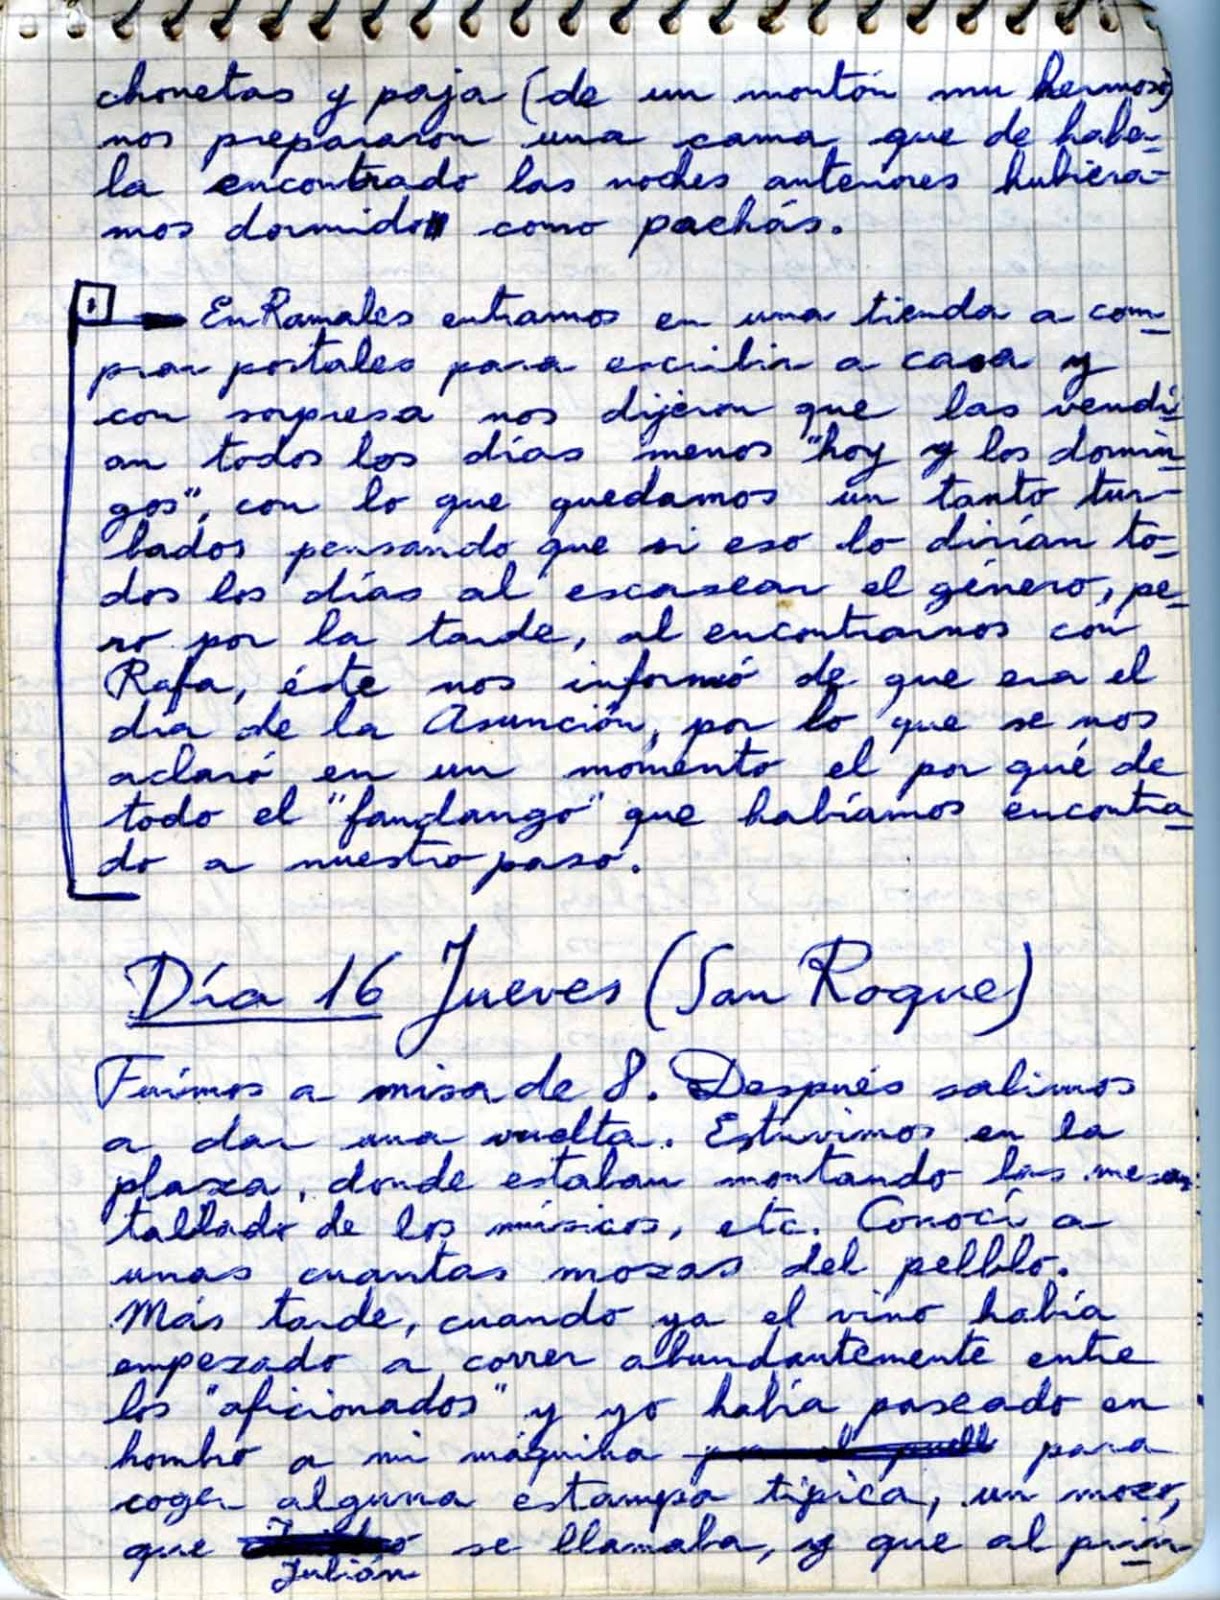 chonetas y paja (de un montón mu hermoso)
nos prepararon una cama que de haber-
la encontrado las noches anteriores hubiéra-
mos dormido como pachás.
En Ramales entramos en una tienda a com-
prar postales para escribir a casa y
con sorpresa nos dijeron que las vendí-
an todos los días menos "hoy y los domin-
gos", con lo que quedamos un tanto tur-
bados pensando que si eso lo dirían to-
dos los días al escasear el género, pe-
ro por la tarde, al encontrarnos con
Rafa, éste nos informó de que era el
día de la Asunción, por lo que se nos
aclaró en un momento el por qué de
todo el "fandango" que habíamos encontra-
do a nuestro paso.
Día 16 Jueves (San Roque)
Fuímos a misa de 8. Después salimos
a dar una vuelta. Estuvimos en la
plaza, donde estaban montando las mesas
tablado de los músicos, etc. Conocí a
unas cuantas mozas del peblblo.
Más tarde, cuando ya el vino había
empezado a correr abundantemente entre
los "aficionados" y yo había paseado en
hombro a mi máquina para
coger alguna estampa típica, un mozo,
que Julián se llamaba, y que al prin-